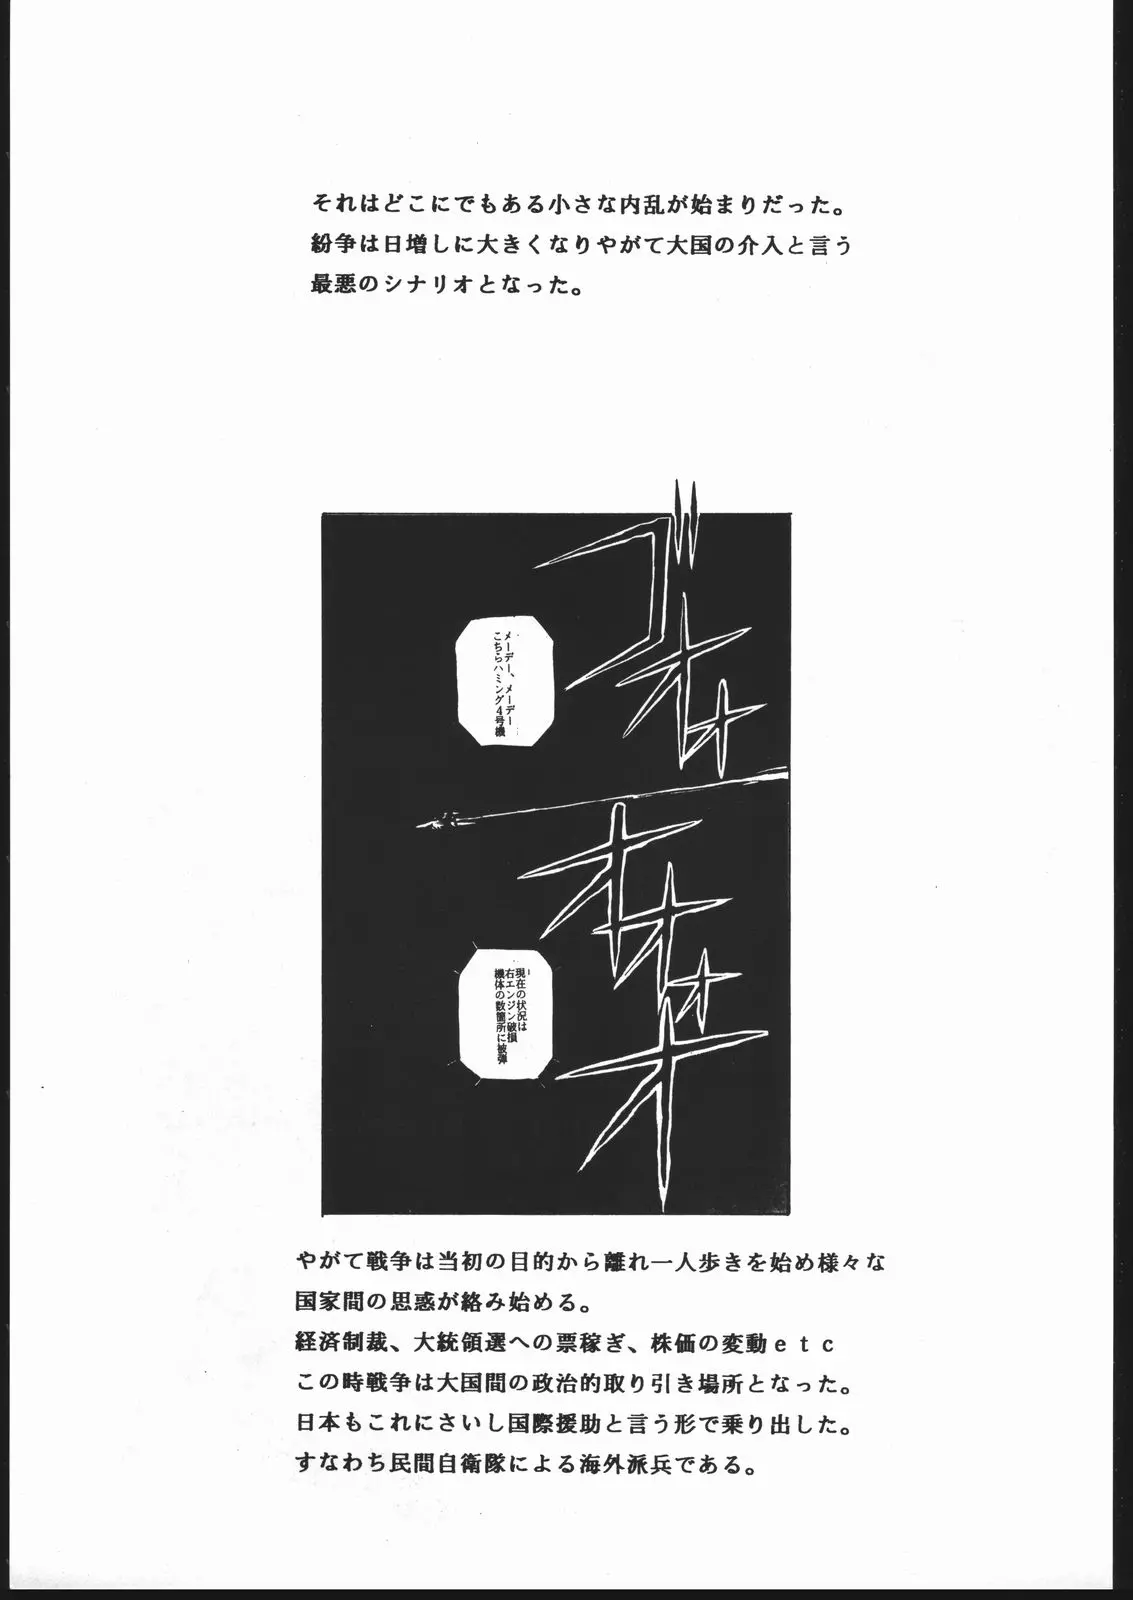 それはどこにでもある小さな内乱が始まりだった。
紛争は日増しに大きくなりやがて大国の介入と言う
最悪のシナリオとなった。
ゴオォ
メーデー、メーデー
こちらハミング4号機
オオォオ
現在の状況は
右エンジン破損
機体の数箇所に被弾
やがて戦争は当初の目的から離れ一人歩きを始め様々な
国家間の思惑が絡み始める。
経済制裁、大統領選への票稼ぎ、株価の変動etc
この時戦争は大国間の政治的取り引き場所となった。
日本もこれにさいし国際援助と言う形で乗り出した。
すなわち民間自衛隊による海外派兵である。